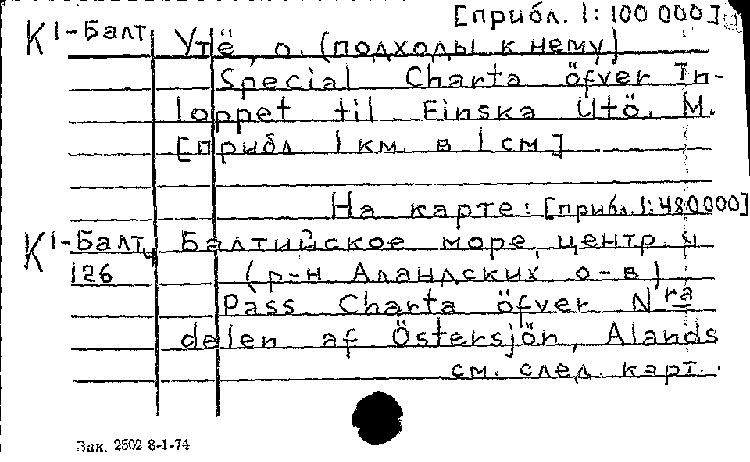 [прибл. 1:100 000]
К 1-Балт Утё, о. (подходы к нему)
Special Charta öfver In-
loppet til Finska Utö. М.
[прибл 1 км в 1 см]
На карте: [прибл. 1:480000]
К 1-Балт Балтийское море, центр. ч
126 (р-н Аландских о-в)
Pass Charta öfver N ra
delen af Östersjön, Alands
см. след. карт.
Зак. 2502 8-1-74